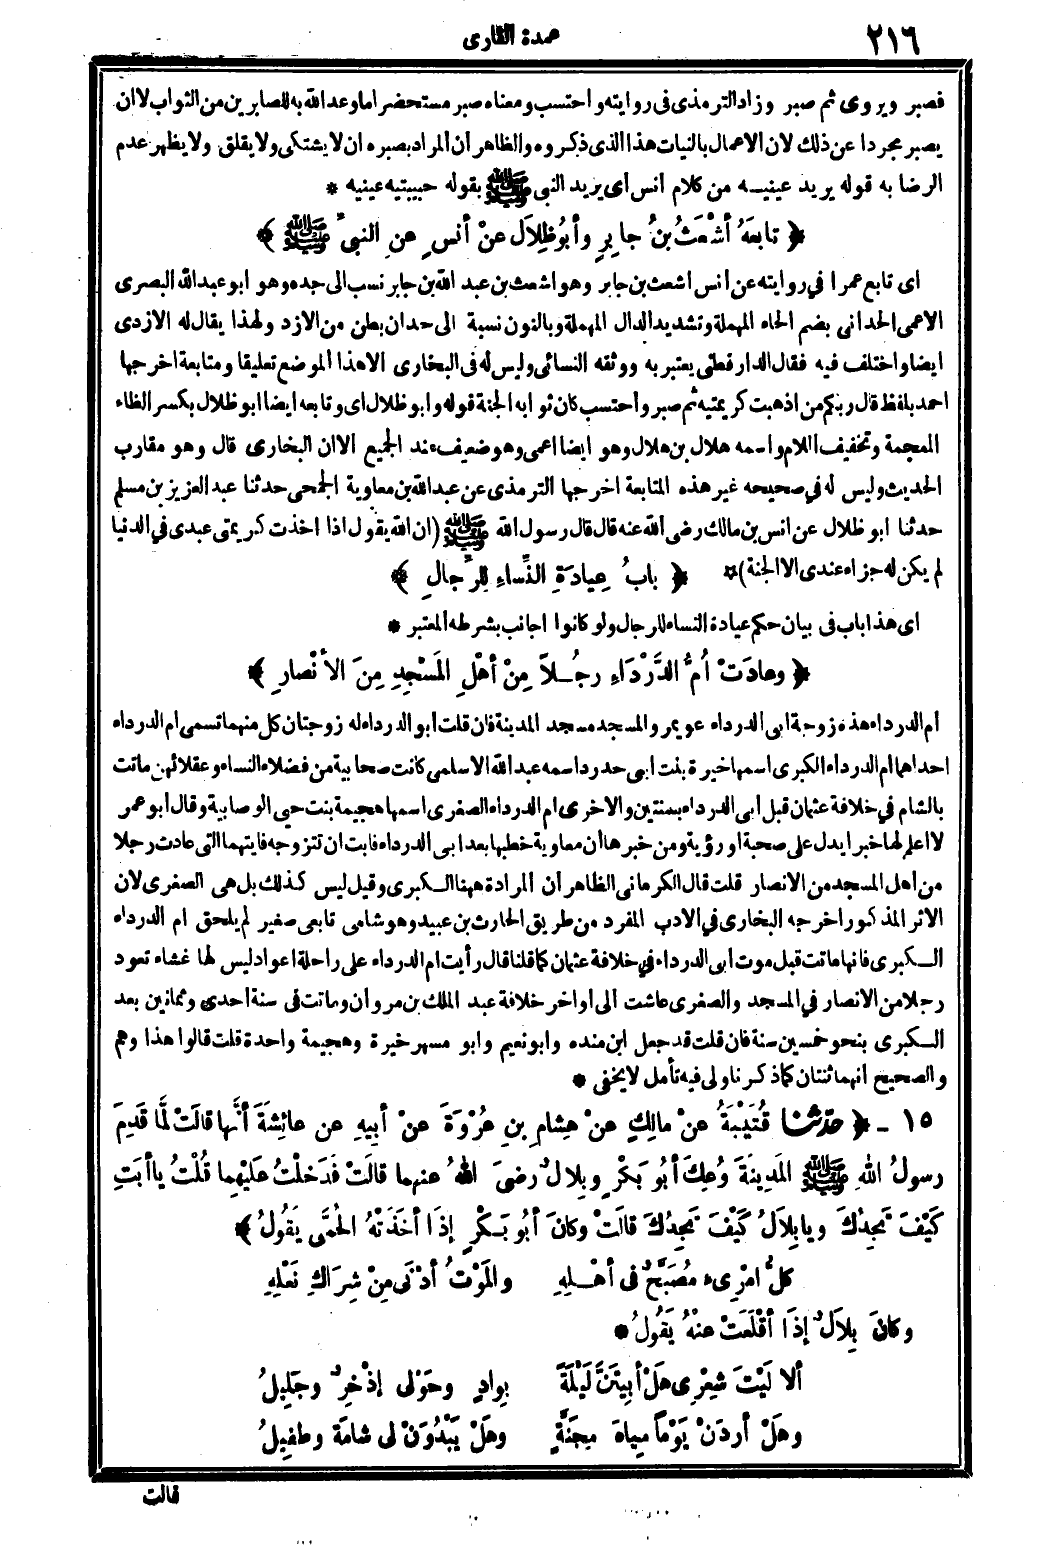 ٢١٦
عمدة القارى
فصبر ويروى ثم صبر وزاد الترمذى فى روايته واحتسب ومعناه صبر مستحضرا ما وعد الله به للصابرين من الثواب لا ان
يصبر مجردا عن ذلك لان الاعمال بالنيات هذا الذى ذكروه والظاهر أن المراد بصبره ان لا يشتكى ولا يقلق ولا يظهر عدم
الرضا به قوله يريد عينيه من كلام أنس أى يريد النبى ﷺ بقوله حبيبتيه عينيه *
﴿ تابعَهُ أشْعَثُ بنُ جابِرٍ وأبُو ظِلَال عنْ أنسٍ عنِ النبىِّ ﷺ ﴾
اى تابع عمرا في روايته عن أنس اشعث بن جابر وهو اشعث بن عبد الله بن جابر نسب الى جده وهو ابو عبد الله البصرى
الاعمى الحدانى بضم الحاء المهملة وتشديد الدال المهملة وبالنون نسبة الى حدان بطن من الازد ولهذا يقال له الازدى
ايضا واختلف فيه فقال الدارقطنى يعتبر به ووثقه النسائى وليس له فى البخارى الا هذا الموضع تعليقا ومتابعة اخرجها
احمد بلفظ قال ربكم من اذهبت كريمتيه ثم صبر واحتسب كان ثوابه الجنة قوله وابو ظلال اى وتابعه ايضا ابو ظلال بكسر الظاء
المعجمة وتخفيف اللام واسمه هلال بن هلال وهو ايضا اعمى وهو ضعيف عند الجميع الا ان البخارى قال وهو مقارب
الحديث وليس له في صحيحه غير هذه المتابعة اخرجها الترمذى عن عبد الله بن معاوية الجمحى حدثنا عبد العزيز بن مسلم
حدثنا ابو ظلال عن انس بن مالك رضى الله عنه قال قال رسول الله ﷺ (ان الله يقول اذا اخذت كريمتى عبدى في الدنيا
لم يكن له جزاء عندى الا الجنة) * ﴿ بابُ عِيادَةِ النِّساءِ لِلرِّجالِ ﴾
اى هذا باب فى بيان حكم عيادة النساء للرجال ولو كانوا اجانب بشرطه المعتبر *
﴿ وعادَتْ أُمُّ الدَّرْدَاءِ رجُلاً مِنْ أهْلِ المَسْجِدِ مِنَ الأنْصارِ ﴾
أم الدرداء هذه زوجة ابى الدرداء عويمر والمسجد مسجد المدينة فان قلت أبو الدرداء له زوجتان كل منهما تسمى ام الدرداء
احداهما ام الدرداء الكبرى اسمها خيرة بنت ابى حدرد اسمه عبد الله الاسلمى كانت صحابية من فضلاء النساء وعقلائهن ماتت
بالشام في خلافة عثمان قبل ابى الدرداء بسنتين والاخرى ام الدرداء الصغرى اسمها هجيمة بنت حيى الوصابية وقال أبو عمر
لا اعلم لها خبرا يدل على صحبة او رؤية ومن خبرها أن معاوية خطبها بعد ابى الدرداء فابت ان تتزوجه فايتهما التى عادت رجلا
من أهل المسجد من الانصار قلت قال الكرمانى الظاهر أن المرادة ههنا الكبرى وقيل ليس كذلك بل هى الصغرى لان
الاثر المذكور اخرجه البخارى في الادب المفرد من طريق الحارث بن عبيد وهو شامى تابعى صغير لم يلحق ام الدرداء
الكبرى فانها ماتت قبل موت ابى الدرداء في خلافة عثمان كما قلنا قال رأيت ام الدرداء على راحلة اعواد ليس لها غشاء تعود
رجلا من الانصار في المسجد والصغرى عاشت الى اواخر خلافة عبد الملك بن مروان وماتت فى سنة احدى وثمانين بعد
الكبرى بنحو خمسين سنة فان قلت قد جعل ابن منده وابو نعيم وابو مسهر خيرة وهجيمة واحدة قلت قالوا هذا وهم
والصحيح انهما ثنتان كما ذكرنا ولى فيه تأمل لا يخفى *
١٥ - ﴿ حَدَّثَنَا قُتَيْبَةُ عنْ مالِكٍ عنْ هِشامِ بنِ عُرْوَةَ عنْ أبِيهِ عن عائِشَةَ أنَّها قالَتْ لمَّا قَدِمَ
رسولُ اللهِ ﷺ المَدِينَةَ وُعِكَ أبُو بَكْرٍ وبِلالٌ رضىَ اللهُ عنهما قالَتْ فَدَخلْتُ علَيْهِما قُلْتُ ياأبَتِ
كَيْفَ تَجِدُكَ ويا بِلَالُ كَيْفَ تَجِدُكَ قالَتْ وكانَ أبُو بَكْرٍ إذَا أخَذَتْهُ الحُمَّى يَقُولُ ﴾
كلُّ امْرِىءٍ مُصَبَّحٌ فى أهْلِهِ والمَوْتُ أدْنَى مِنْ شِرَاكِ نَعْلِهِ
وكانَ بِلاَلٌ إذَا أقْلَعَتْ عنْهُ يَقُولُ *
ألا لَيْتَ شِعْرِى هَلْ أبِيتَنَّ لَيْلَةً بِوادٍ وحَوْلى إذْخِرٌ وجَلِيلُ
وهَلْ أرِدَنْ يَوْماً مِياهَ مِجَنَّةٍ وهَلْ يَبْدُوَنْ لى شامَةٌ وطَفِيلُ
قالت